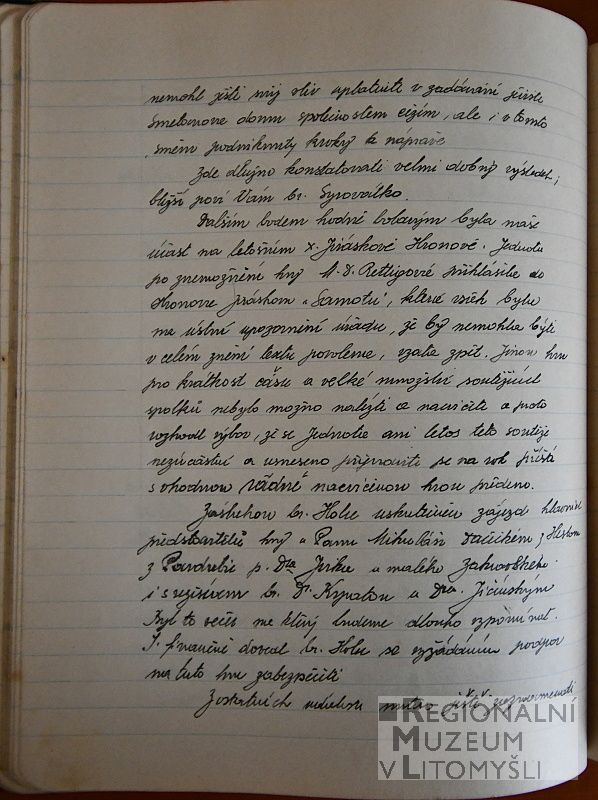 nemohl ještě svůj vliv uplatniti v zadávání jeviště
Smetanova domu společnostem cizím, ale i v tomto
směru podniknuty kroky k nápravě
Zde dlužno konstatovati velmi dobrý výsledek,
bližší poví Vám br. Syrovátko.
Dalším bodem hodně bolavým byla naše
účast na letošním X. Jiráskově Hronově. Jednota
po znemožnění hry M. D. Rettigové přihlásila do
Hronova Jiráskovu "Samotu", která však byla
na ústní upozornění úřadu, že by nemohla býti
v celém znění textu povolena, vzata zpět. Jinou hru
pro krátkost času a velké množství soutěžících
spolků nebylo možno nalézti a nacvičiti a proto
rozhodl výbor, že se Jednota ani letos této soutěže
nezúčastní a usneseno připraviti se na rok příští
s vhodnou řádně nacvičenou hrou předem.
Zásluhou br. Holce uskutečněn zájezd hlavních
představitelů hry o Panu Mikuláši Dačickém z Heslova
z Pardubic p. Dra Jirku a malého Zahradského
i s režisérem br. Dr. Krpatou a Dra. Jičínským
Byl to večer na který budeme dlouho vzpomínat.
I finančně dovedl br. Holec se vyžádáním podpor
na tuto hru zabezpečiti
Z ostatních nutno ještě zaznamenati
REGIONÁLNÍ
MUZEUM
V LITOMYŠLI